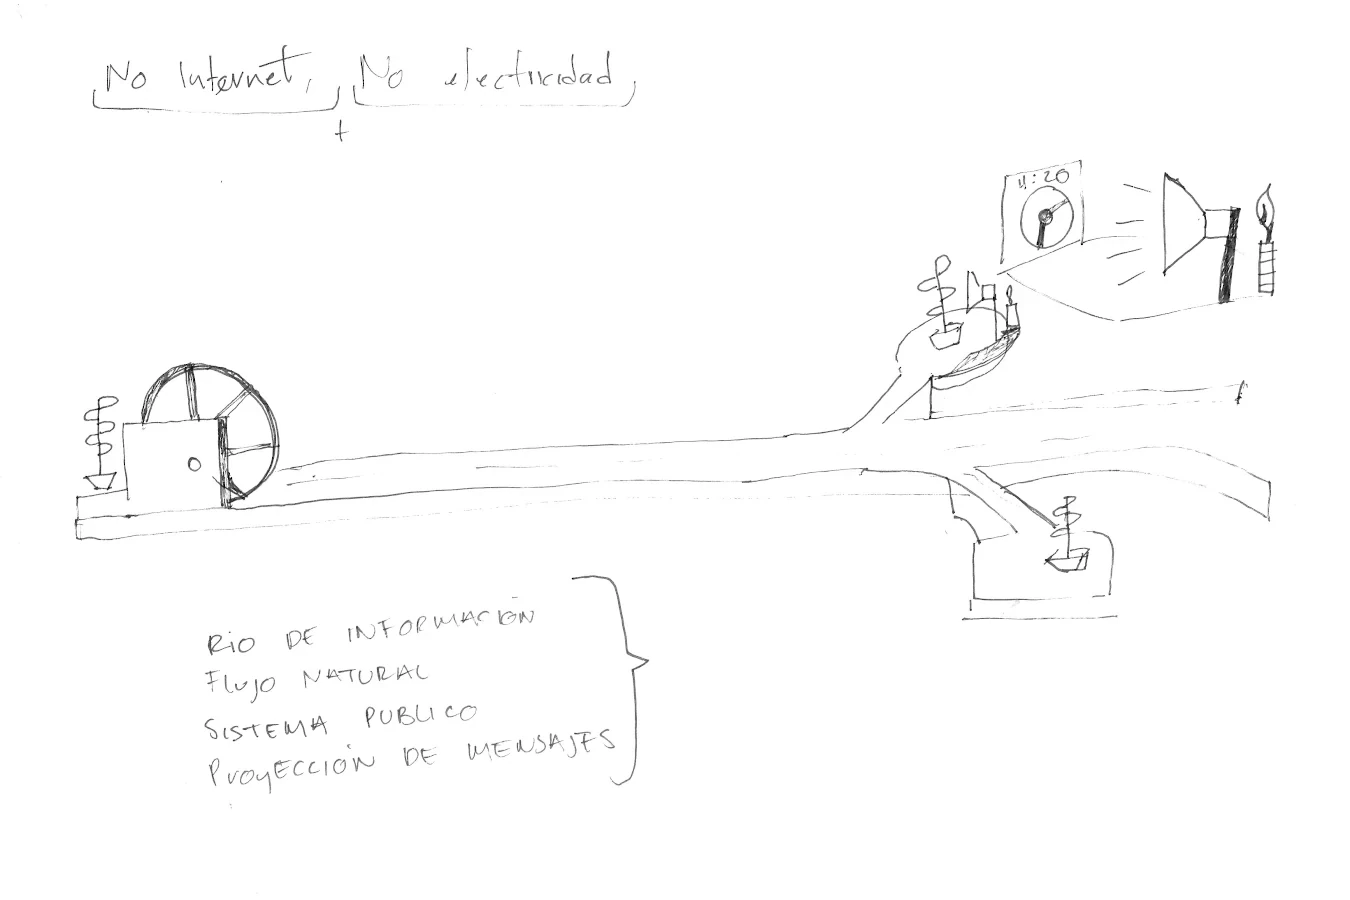 No Internet, No electricidad,
+
4:20
RIO DE INFORMACIÓN
Flujo NATURAL
SISTEMA PUBLICO
PROYECCIÓN DE MENSAJES